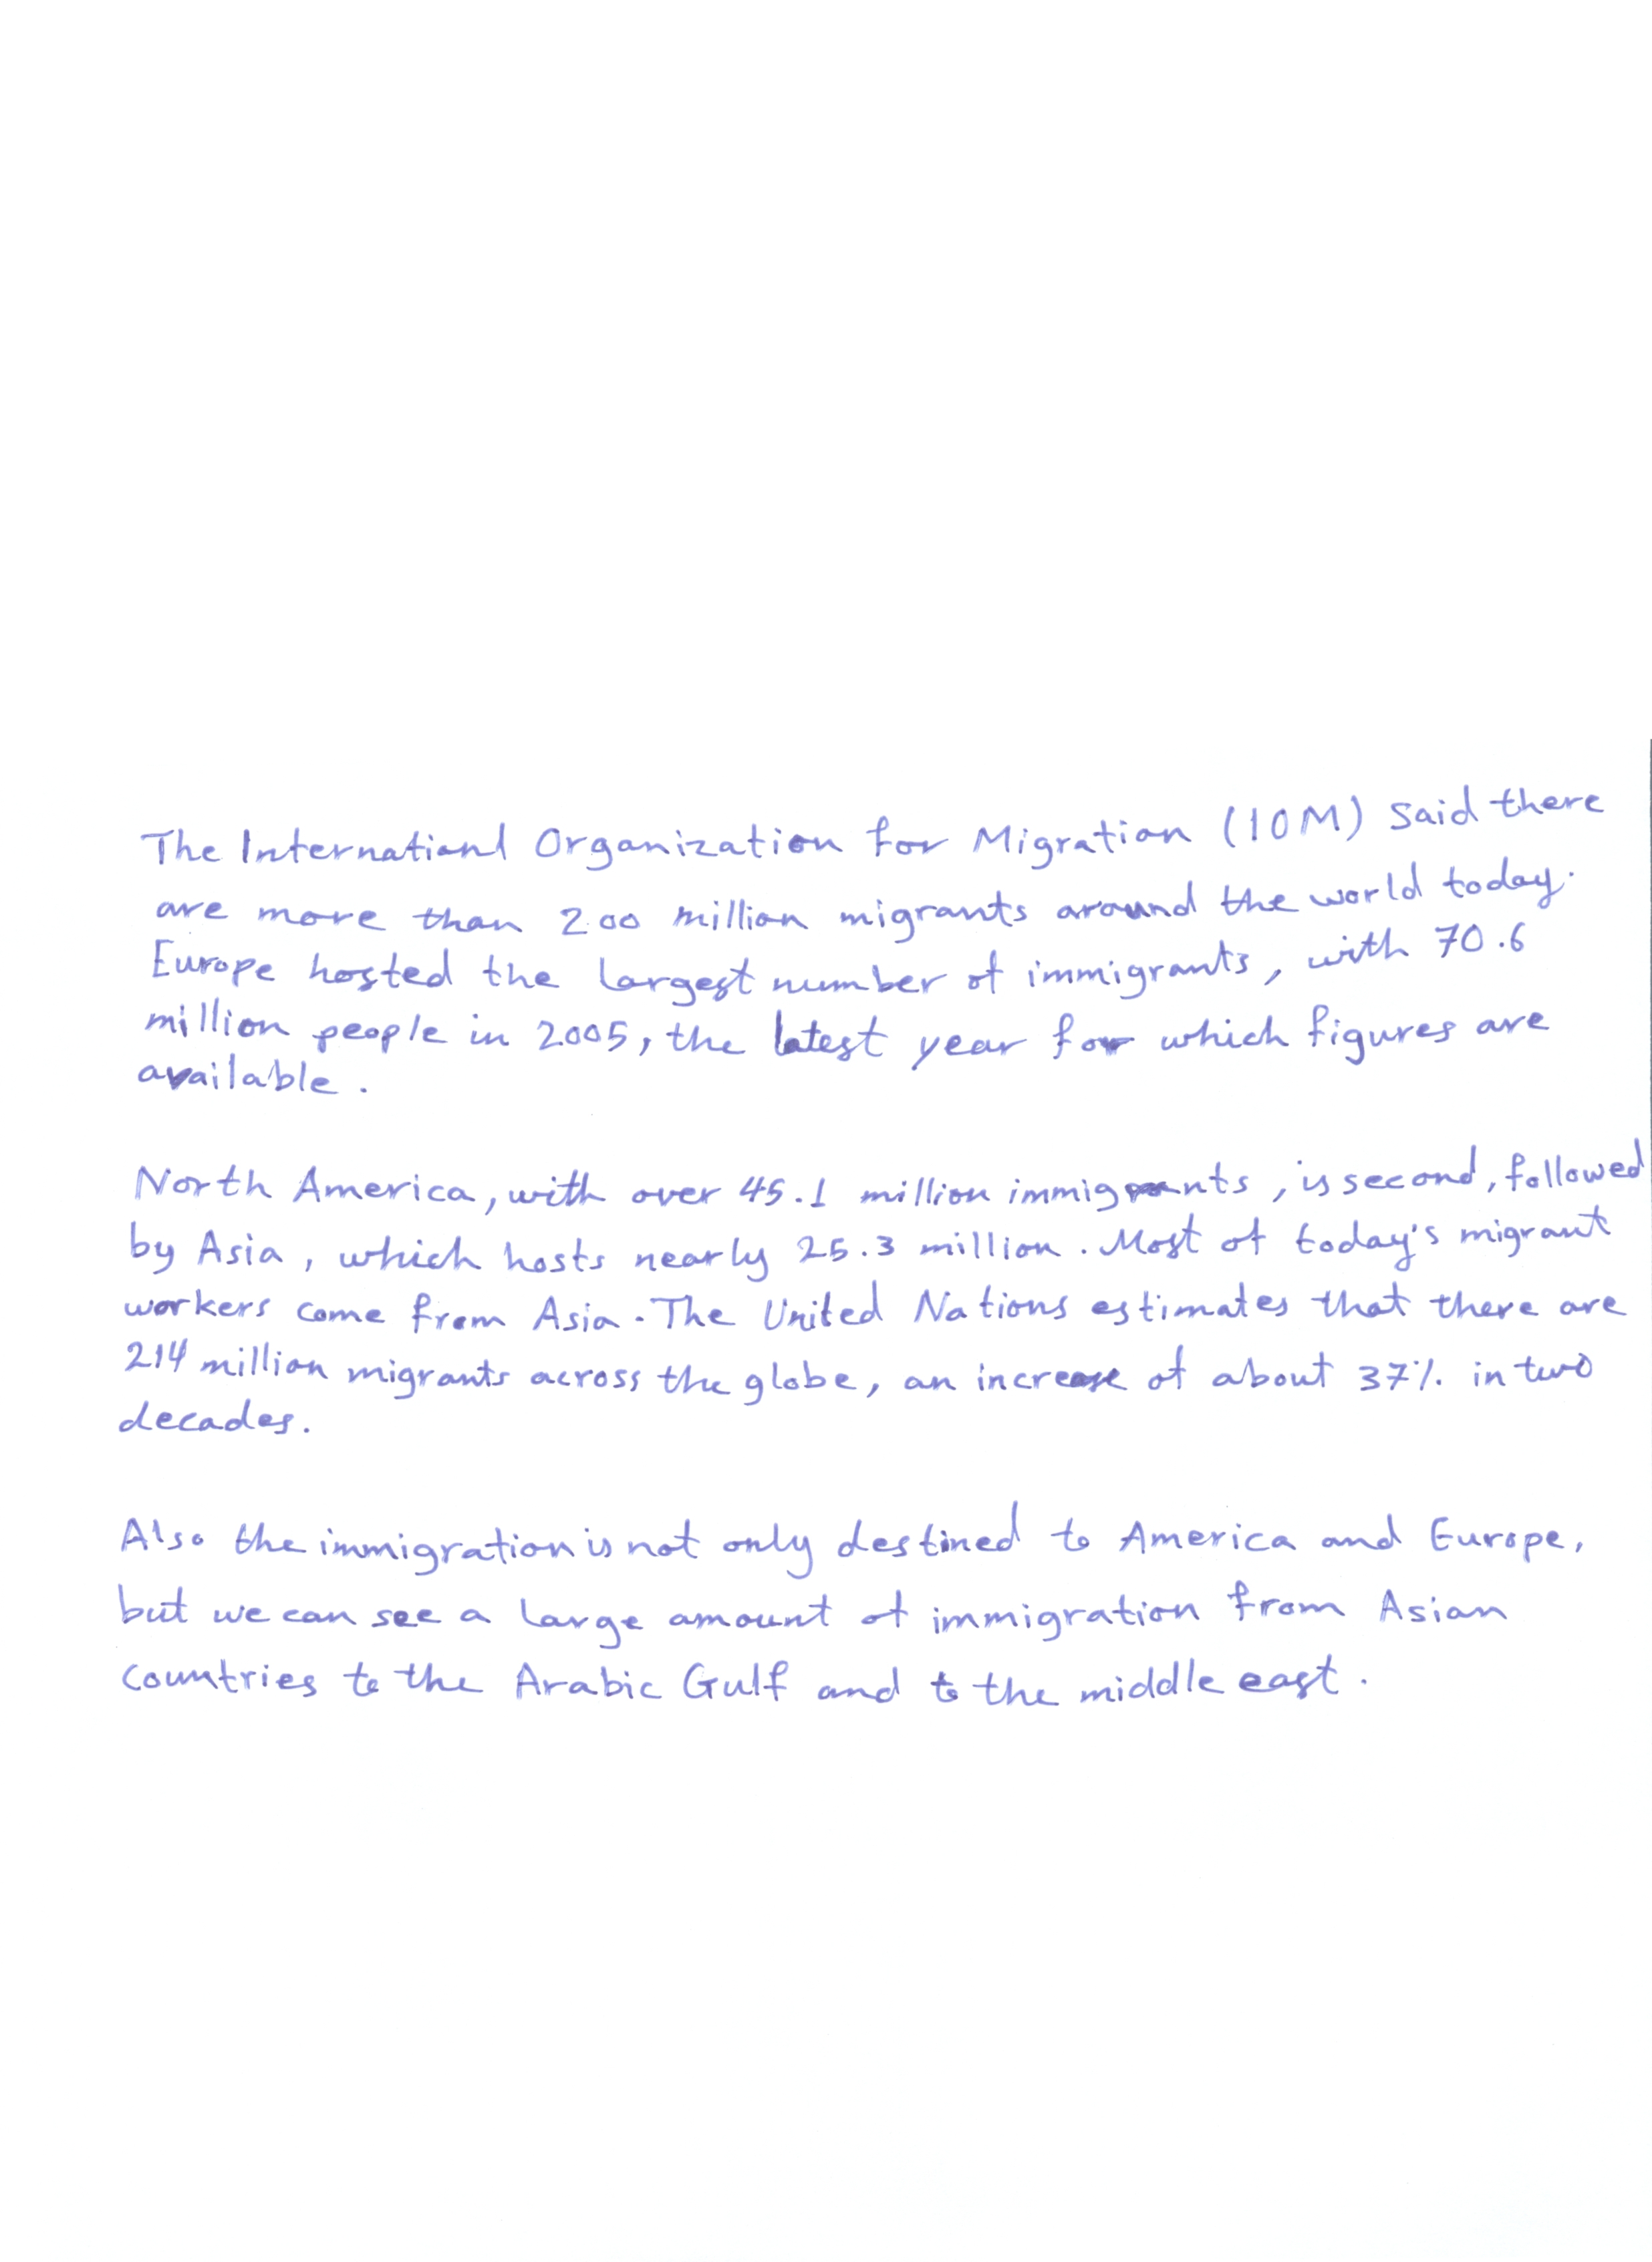 The International Organization for Migration (IOM) said there
are more than 200 million migrants around the world today.
Europe hosted the largest number of immigrants, with 70.6
million people in 2005, the latest year for which figures are
available.
North America, with over 45.1 million immigrants, is second, followed
by Asia, which hosts nearly 25.3 million. Most of today's migrant
workers come from Asia. The United Nations estimates that there are
214 million migrants across the globe, an increase of about 37% in two
decades.
Also the immigration is not only destined to America and Europe,
but we can see a large amount of immigration from Asian
Countries to the Arabic Gulf and to the middle east.